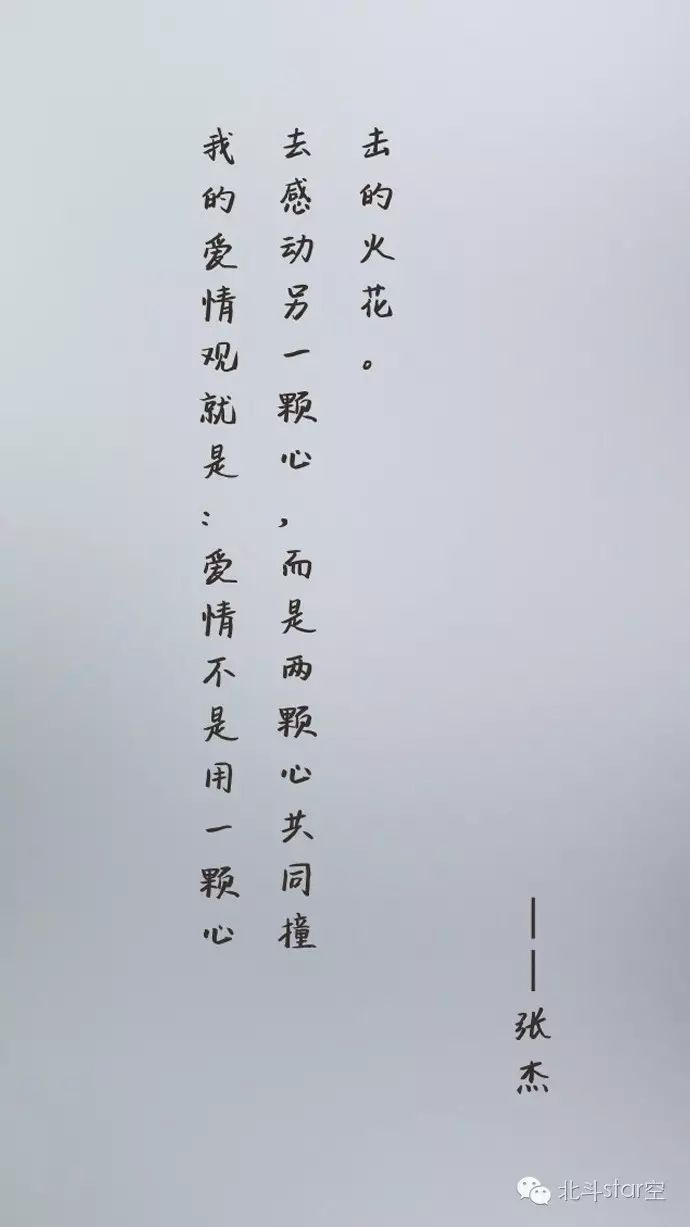 我的爱情观就是：爱情不是用一颗心
去感动另一颗心，而是两颗心共同撞
击的火花。
——张杰
北斗star空